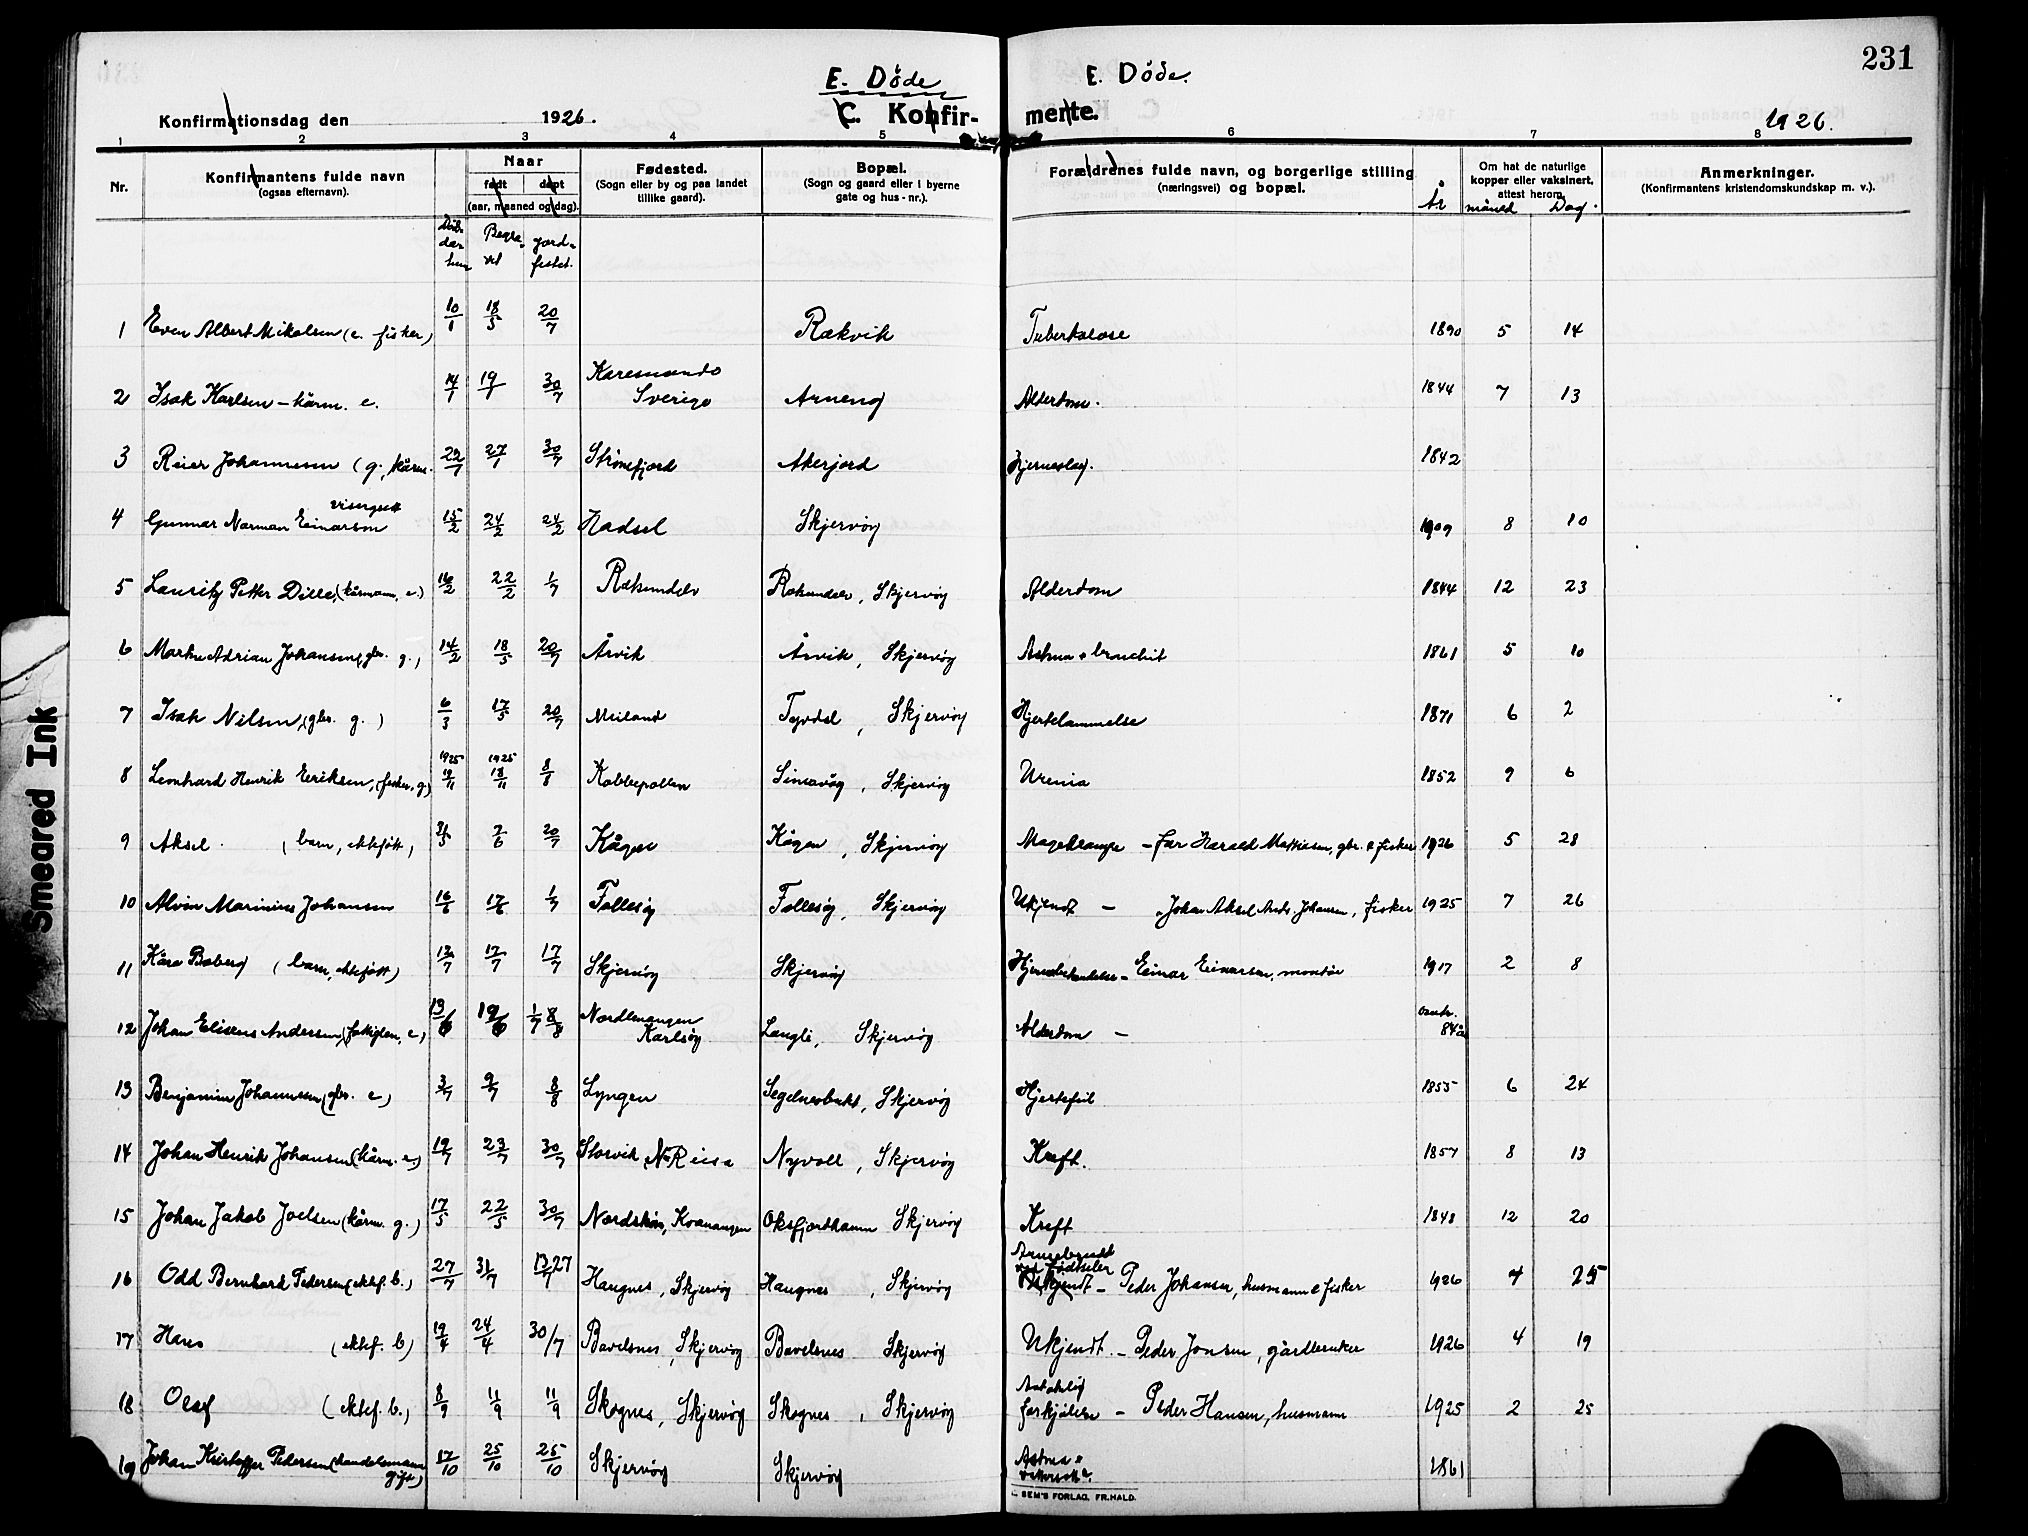 231
E. Døde
E. Døde.
Konfirmationsdag den 1926.
C. Konfir-
mente.
1926.
1 2 3 4 5 6 7 8
Nr.
Konfirmantens fulde navn
(ogsaa efternavn).
Naar
født døpt
(aar, maaned og dag).
Fødested.
(Sogn eller by og paa landet
tillike gaard).
Bopæl.
(Sogn og gaard eller i byerne
gate og hus-nr.).
Forældrenes fulde navn, og borgerlige stilling
(næringsvei) og bopæl.
År
Om hat de naturlige
kopper eller vaksinert,
attest herom.
måned Dag.
Anmerkninger.
(Konfirmantens kristendomskundskap m. v.).
Begra-
vet
jord-
festet.
1 Even Albert Mikalsen (e. fisker) 10/1 18/5 20/7 Rækvik Tuberkulose 1890 5 14
2 Isak Karlsen - kårm. e. 14/1 19/1 30/7 Karesuando Sverige Arneng Alderdom. 1844 7 13
3 Reier Johannesen (g. kårm. 22/1 27/1 30/7 Akerjord Hjerneslag. 1842
4 Gunnar Norman Einarson 15/2 24/2 24/2 Hadsel Skjervøy 1909 8 10
5 Lauritz Petter Dille, (kårmann, e.) 16/2 22/2 1/7 Rakundelv, Skjervøy Alderdom 1844 12 23
6 Martin Adrian Johansen, gbr. g.) 14/2 18/5 20/7 Årvik Årvik, Skjervøy Astma + bronchit 1861 5 10
7 Isak Nilsen, (gbr. g.) 6/3 17/5 20/7 Meiland Tyvdal, Skjervøy Hjertelammelse 1871 6 2
8 Leonhard Henrik Eriksen, (fisker, g) 1925 1925 18/11 8/8 Kobbepollen Simavåg, Skjervøy Uremia 1852 9 6
9 Aksel (barn, ektefött) 31/5 2/6 20/7 Kågen Kågen, Skjervøy Magekrampe - far Harald Mathisen, gbr. & fisker 1926 5 28
10 Alvin Marinius Johansen 16/6 17/6 1/7 Follesøy Follesøy, Skjervøy Ukjendt - Johan Aksel Andr. Johansen, fisker 1925 7 26
11 Kåre Boberg (barn, ektefött) 12/7 17/7 17/7 Skjervøy Skjervøy Einar Einarsen, montør 1917 2 8
12 Johan Eliseus Andersen, (fattiglem, e) 13/6 19/6 1/7 8/8 Nordlenangen Karlsøy Laugli, Skjervøy Alderdom - omtr. 84 år
13 Benjamin Johannesen (gbr. e) 3/7 9/7 8/8 Lyngen Segelnesbukt, Skjervøy Hjertefeil 1855 6 24
14 Johan Henrik Johansen (kårm. e.) 19/7 23/7 30/7 Storvik, N-Reisa Nyvoll, Skjervøy Kreft. 1857 8 13
15 Johan Jakob Joelsen (kårm. g.) 17/5 22/5 30/7 Nordstrøm, Kvænangen Oksfjordhamn Skjervøy Kreft 1848 12 20
16 Odd Bernhard Pedersen (ektef. b.) 27/7 31/7 13/7 27 Haugnes, Skjervøy Haugnes, Skjervøy Ukjendt - Peder Johansen, husmann & fisker 1926 4 25
17 Hans (ektef. b) 19/4 24/4 30/7 Bavelsnes, Skjervøy Bavelsnes Skjervøy Ukjendt. - Peder Jonsen, gårdbruker 1926 4 19
18 Olaf (ektef. b.) 8/9 11/9 11/9 Skognes, Skjervøy Skognes, Skjervøy forkjølelse - Peder Hansen, husmann 1925 2 25
19 Johan Kristoffer Pedersen (handelsmann gift) 17/10 25/10 25/10 Skjervøy Skjervøy Astma 1861
SEM'S FORLAG, FR.HALD.
Smeared Ink